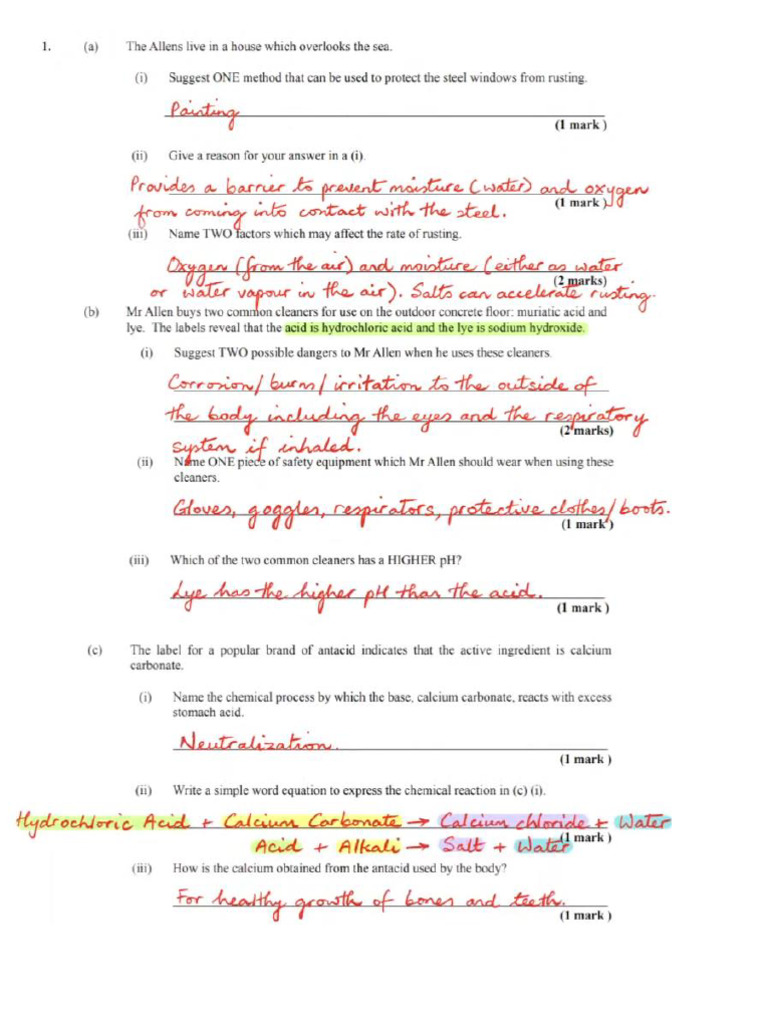 1. (a) The Allens live in a house which overlooks the sea.
(i) Suggest ONE method that can be used to protect the steel windows from rusting.
Painting
(1 mark )
(ii) Give a reason for your answer in a (i).
Provides a barrier to prevent moisture (water) and oxygen
(1 mark )
from coming into contact with the steel.
(iii) Name TWO factors which may affect the rate of rusting.
Oxygen (from the air) and moisture (either as water
(2 marks)
or water vapour in the air). Salts can accelerate rusting.
(b) Mr Allen buys two common cleaners for use on the outdoor concrete floor: muriatic acid and
lye. The labels reveal that the acid is hydrochloric acid and the lye is sodium hydroxide.
(i) Suggest TWO possible dangers to Mr Allen when he uses these cleaners.
Corrosion/burns/irritation to the outside of
the body including the eyes and the respiratory
(2 marks)
system if inhaled.
(ii) Name ONE piece of safety equipment which Mr Allen should wear when using these
cleaners.
Gloves, goggles, respirators, protective clothes/boots.
(1 mark )
(iii) Which of the two common cleaners has a HIGHER pH?
Lye has the higher pH than the acid.
(1 mark )
(c) The label for a popular brand of antacid indicates that the active ingredient is calcium
carbonate.
(i) Name the chemical process by which the base, calcium carbonate, reacts with excess
stomach acid.
Neutralization.
(1 mark )
(ii) Write a simple word equation to express the chemical reaction in (c) (i).
Hydrochloric Acid + Calcium Carbonate → Calcium chloride + Water
(1 mark )
Acid + Alkali → Salt + Water
(iii) How is the calcium obtained from the antacid used by the body?
For healthy growth of bones and teeth.
(1 mark )